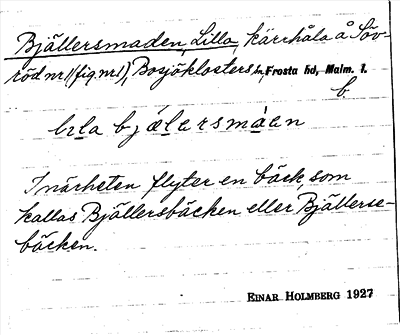 Bjällersmaden, Lilla, kärrhåla å Söv-
röd nr 1 (fig. nr 1), Bosjöklosters sn, Frosta hd, Malm. l.
b.
lɩla bjælersmáen
I närheten flyter en bäck, som
kallas Bjällersbäcken eller Bjällerse-
bäcken.
EINAR HOLMBERG 1927